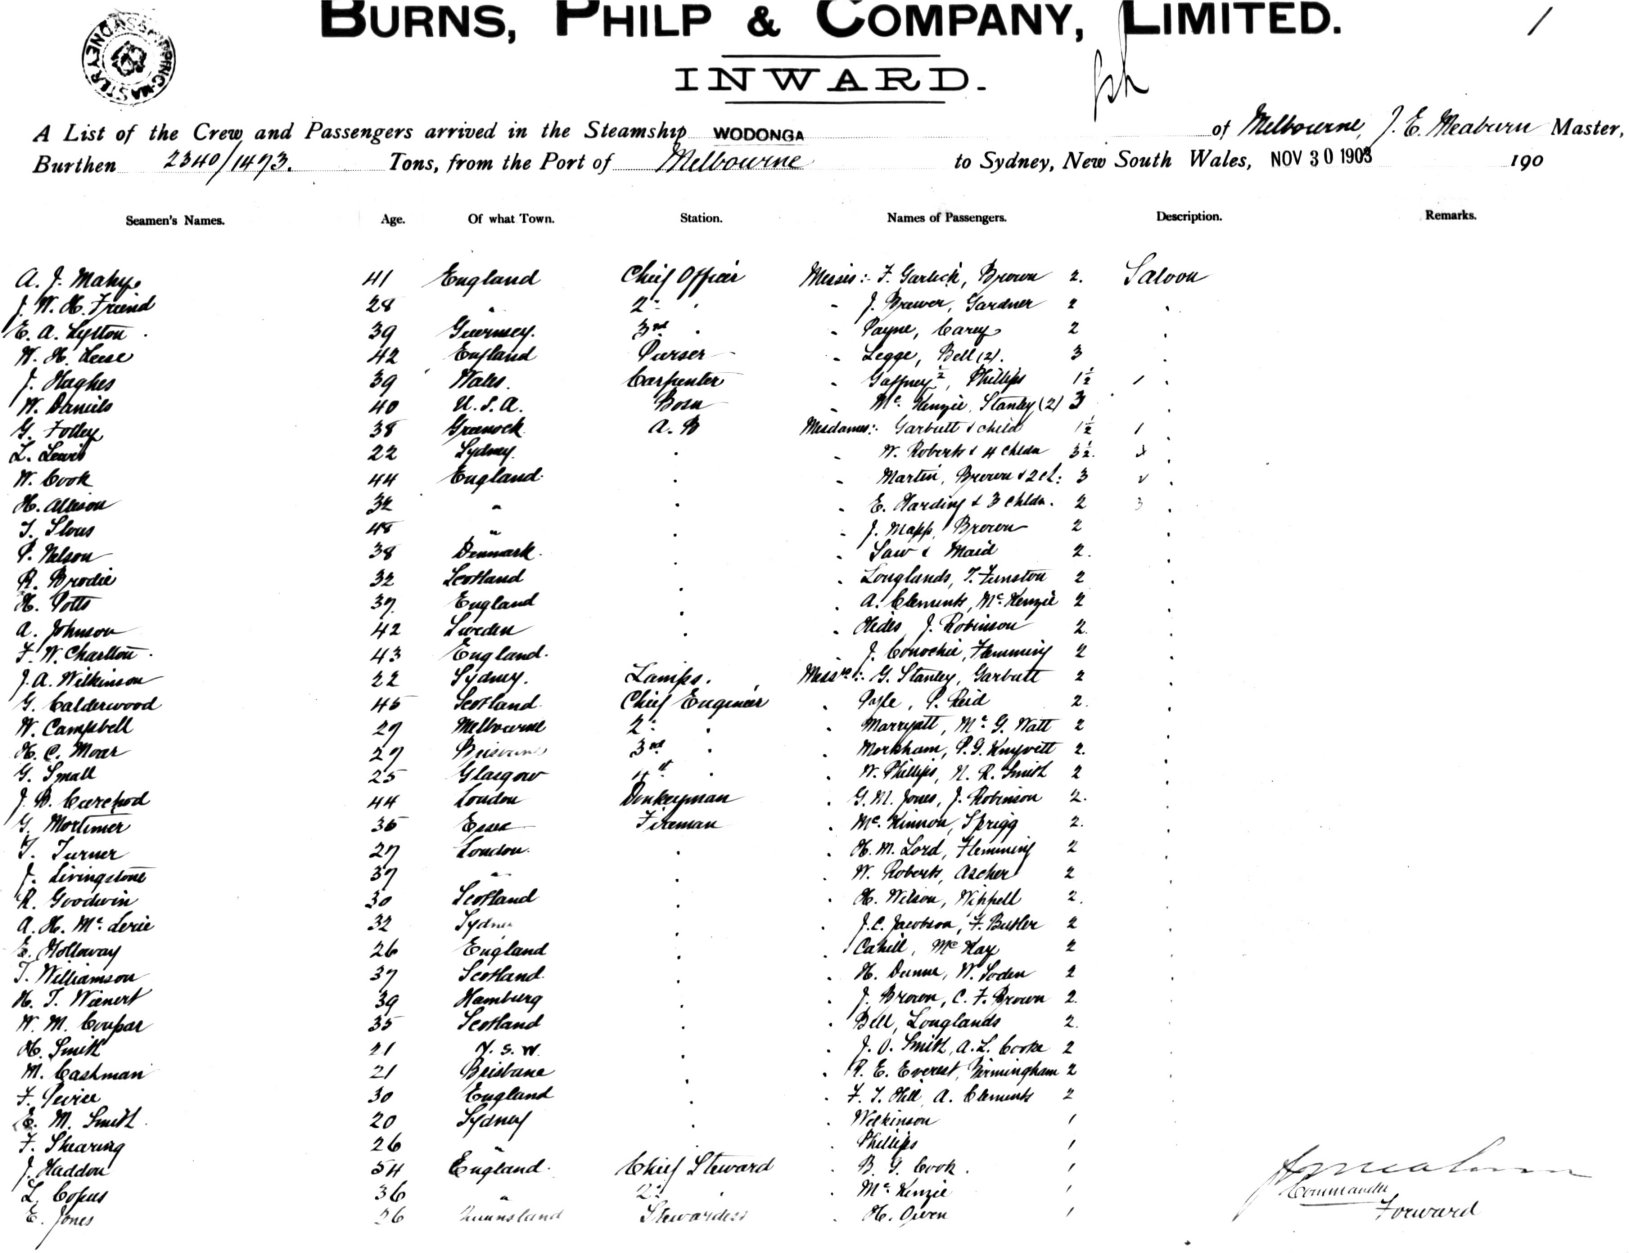 BURNS, PHILP & COMPANY, LIMITED. 1
INWARD.
A List of the Crew and Passengers arrived in the Steamship WODONGA of Melbourne, J. E. Meaburn Master,
Burthen 2340/1473. Tons, from the Port of Melbourne to Sydney, New South Wales, NOV 30 1903 190
Seamen's Names. Age. Of what Town. Station. Names of Passengers. Description. Remarks.
A. J. 41 England Chief Officer Messrs:- F. Garlick, Brown 2. Saloon
J. W. H. Friend 28 " 2nd " J. Brewer, Gardner 2
E. A. Lyston 39 Guernsey. 3rd " Payne, Carey 2
W. H. Leese 42 England Purser Legge, Bell (2). 3
J. Hughes 39 Wales. Carpenter Gaffney ½, Phillips 1½ 1
W. Daniels 40 U.S.A. Bosn Mc. Kenzie, Stanley (2) 3
G. Folley 38 Greenock A.B Mesdames:- Garbutt & child 1½ 1
L. Lewis 22 Sydney. W. Roberts & 4 Chldn 3½. 3
W. Cook 44 England Martin, Brown & 2 ch: 3 2
H. Allison 32 " E. Harding & 3 Chldn. 2 3
T. 48 " J. Mapp, Brown 2
P. Nelson 38 Denmark. Law & Maid 2.
R. Brodie 32 Scotland Longlands, T. Funston 2
H. Potts 37. England A. Clements, Mc. Kenzie 2
A. Johnson 42 Sweden Hides J. Robinson 2.
F. W. Charlton. 43 England. J. Conochie, Flemming 2
J. A. Wilkinson 22 Sydney. Lamps. Misses:- G. Stanley, Garbutt 2
G. Calderwood 45 Scotland Chief Engineer P. Reid 2.
W. Campbell 29 Melbourne 2nd " Marryatt, Mc. G. Watt 2
H. C. Moar 27 Brisbane 3rd " Markham, P. G. Knyvett 2.
G. Small 25 Glasgow 4th " W. Phillips, N. R. Smith 2
J. B. 44 London Donkeyman G. M. Jones, J. Robinson 2.
G. Mortimer 35 Essex Fireman Mc. Kinnon, Sprigg 2.
T. Turner 27 London. H. M. Lord, Flemming 2
J. Livingstone 37 " W. Roberts, Ascher 2
R. Goodwin 30 Scotland H. Wilson, Wippell 2.
A. H. Mc. Lerie 32 Sydney J. C. Jacobson, F. Butler 2
E. Holloway 26 England Cahill, Mc Kay 2
T. Williamson 37 Scotland. H. Dunne, W. Soden 2
H. T. Wienert 39 Hamburg J. Brown, C. F. Brown 2.
W. M. Coupar 35 Scotland Bell, Longlands 2.
H. Smith 21 N.S.W. J. O. Smith, A. L. Cooke 2
M. Cashman 21 Brisbane R. E. Everest, Birmingham 2
F. 30 England F. T. Hill, A. Clements 2
E. M. Smith. 20 Sydney Wilkinson 1
F. Shearing 26 " Phillips 1
J. Haddon 54 England. Chief Steward B. G. Cook. 1
L. Copus 36 " 2nd " Mc. Kenzie 1 Commander
E. Jones 26 Queensland Stewardess H. Owen 1 Forward